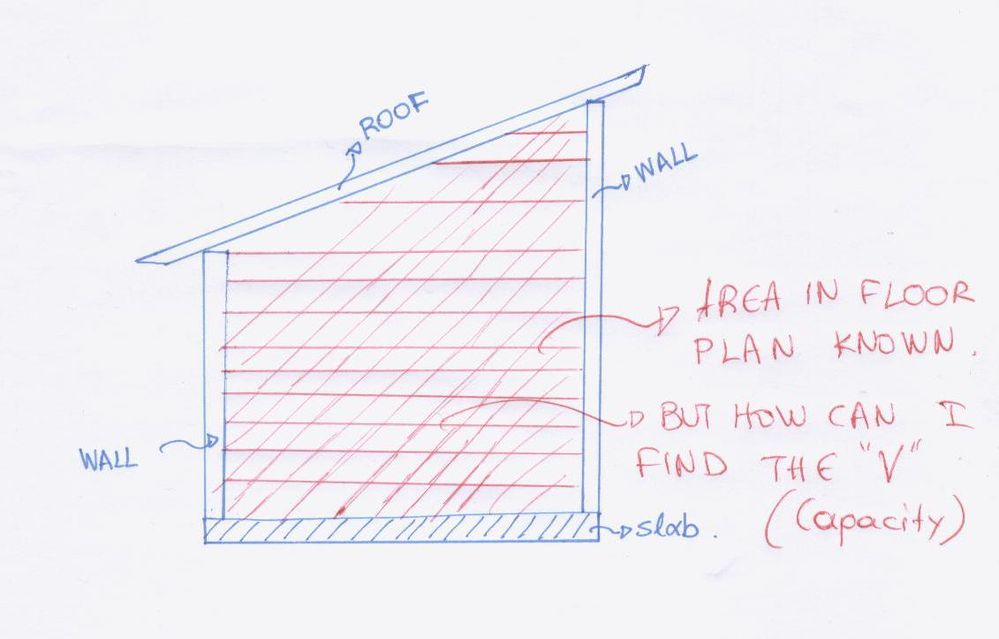 ROOF
WALL
AREA IN FLOOR
PLAN KNOWN.
BUT HOW CAN I
FIND THE "V"
(Capacity)
WALL
slab.